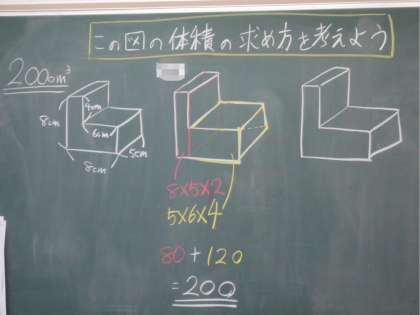 この図の体積の求め方を考えよう
200cm³
8cm
4cm
6cm
5cm
8cm
8×5×2
5×6×4
80+120
=200